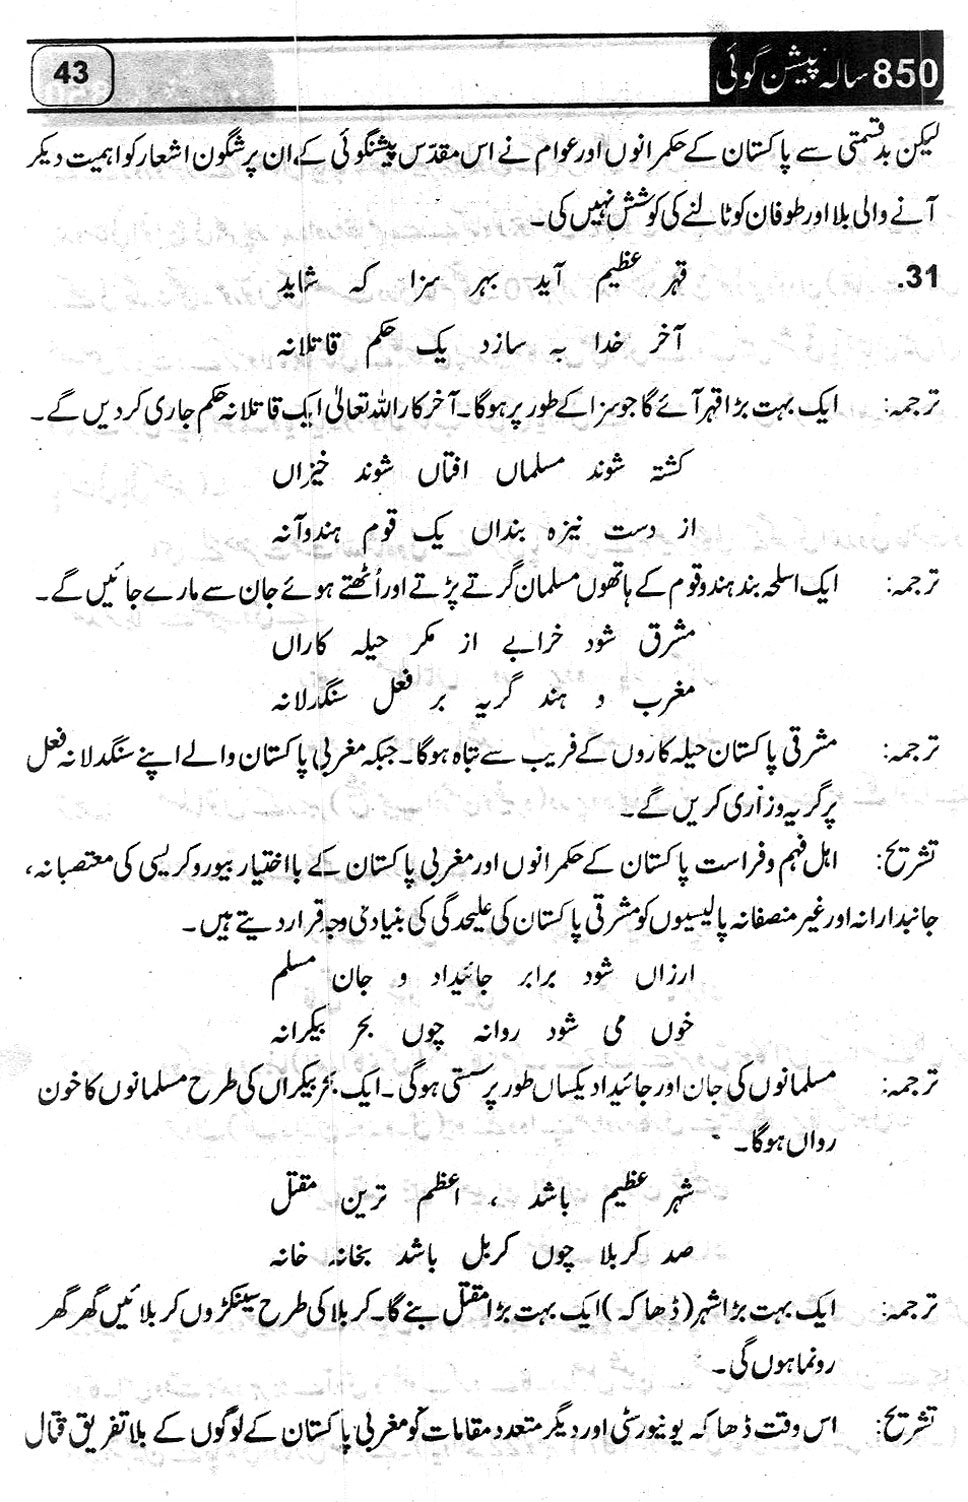 850 سالہ پیشن گوئی
43
لیکن بدقسمتی سے پاکستان کے حکمرانوں اور عوام نے اس مقدّس پیشنگوئی کے، ان پر شگون اشعار کو اہمیت دیکر
آنے والی بلا اور طوفان کو ٹالنے کی کوشش نہیں کی۔
31. قہر عظیم آید بہر سزا کہ شاید
آخر خدا بہ سازد یک حکم قاتلانہ
ترجمہ: ایک بہت بڑا قہر آئے گا جو سزا کے طور پر ہوگا۔ آخر کار اللہ تعالیٰ ایک قاتلانہ حکم جاری کر دیں گے۔
کشتہ شوند مسلماں افتاں شوند خیزاں
از دست نیزہ بنداں یک قوم ہندوآنہ
ترجمہ: ایک اسلحہ بند ہندو قوم کے ہاتھوں مسلمان گرتے پڑتے اور اُٹھتے ہوئے جان سے مارے جائیں گے۔
مشرق شود خرابے از مکر حیلہ کاراں
مغرب و ہند گریہ بر فعل سنگدلانہ
ترجمہ: مشرقی پاکستان حیلہ کاروں کے فریب سے تباہ ہوگا۔ جبکہ مغربی پاکستان والے اپنے سنگدلانہ فعل
پر گریہ وزاری کریں گے۔
تشریح: اہل فہم و فراست پاکستان کے حکمرانوں اور مغربی پاکستان کے بااختیار بیوروکریسی کی متعصبانہ،
جانبدارانہ اور غیر منصفانہ پالیسیوں کو مشرقی پاکستان کی علیحدگی کی بنیادی وجہ قرار دیتے ہیں۔
ارزاں شود برابر جائیداد و جان مسلم
خوں می شود روانہ چوں بحر بیکرانہ
ترجمہ: مسلمانوں کی جان اور جائیداد یکساں طور پر سستی ہوگی۔ ایک بحر بیکراں کی طرح مسلمانوں کا خون
رواں ہوگا۔
شہر عظیم باشد ، اعظم ترین مقتل
صد کربلا چوں کربل باشد بخانہ خانہ
ترجمہ: ایک بہت بڑا شہر (ڈھاکہ) ایک بہت بڑا مقتل بنے گا۔ کربلا کی طرح سینکڑوں کربلائیں گھر گھر
رونما ہوں گی۔
تشریح: اس وقت ڈھاکہ یونیورسٹی اور دیگر متعدد مقامات کو مغربی پاکستان کے لوگوں کے بلا تفریق قتال